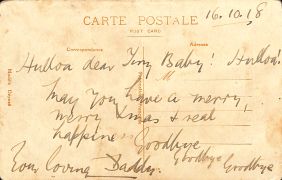 CARTE POSTALE
16.10.18
POST CARD
Correspondence
Adresse
Hulloa dear Tiny Baby! Hulloa!
May you have a merry,
merry Xmas & real
happiness
Goodbye
Your loving Daddy.
Goodbye Goodbye